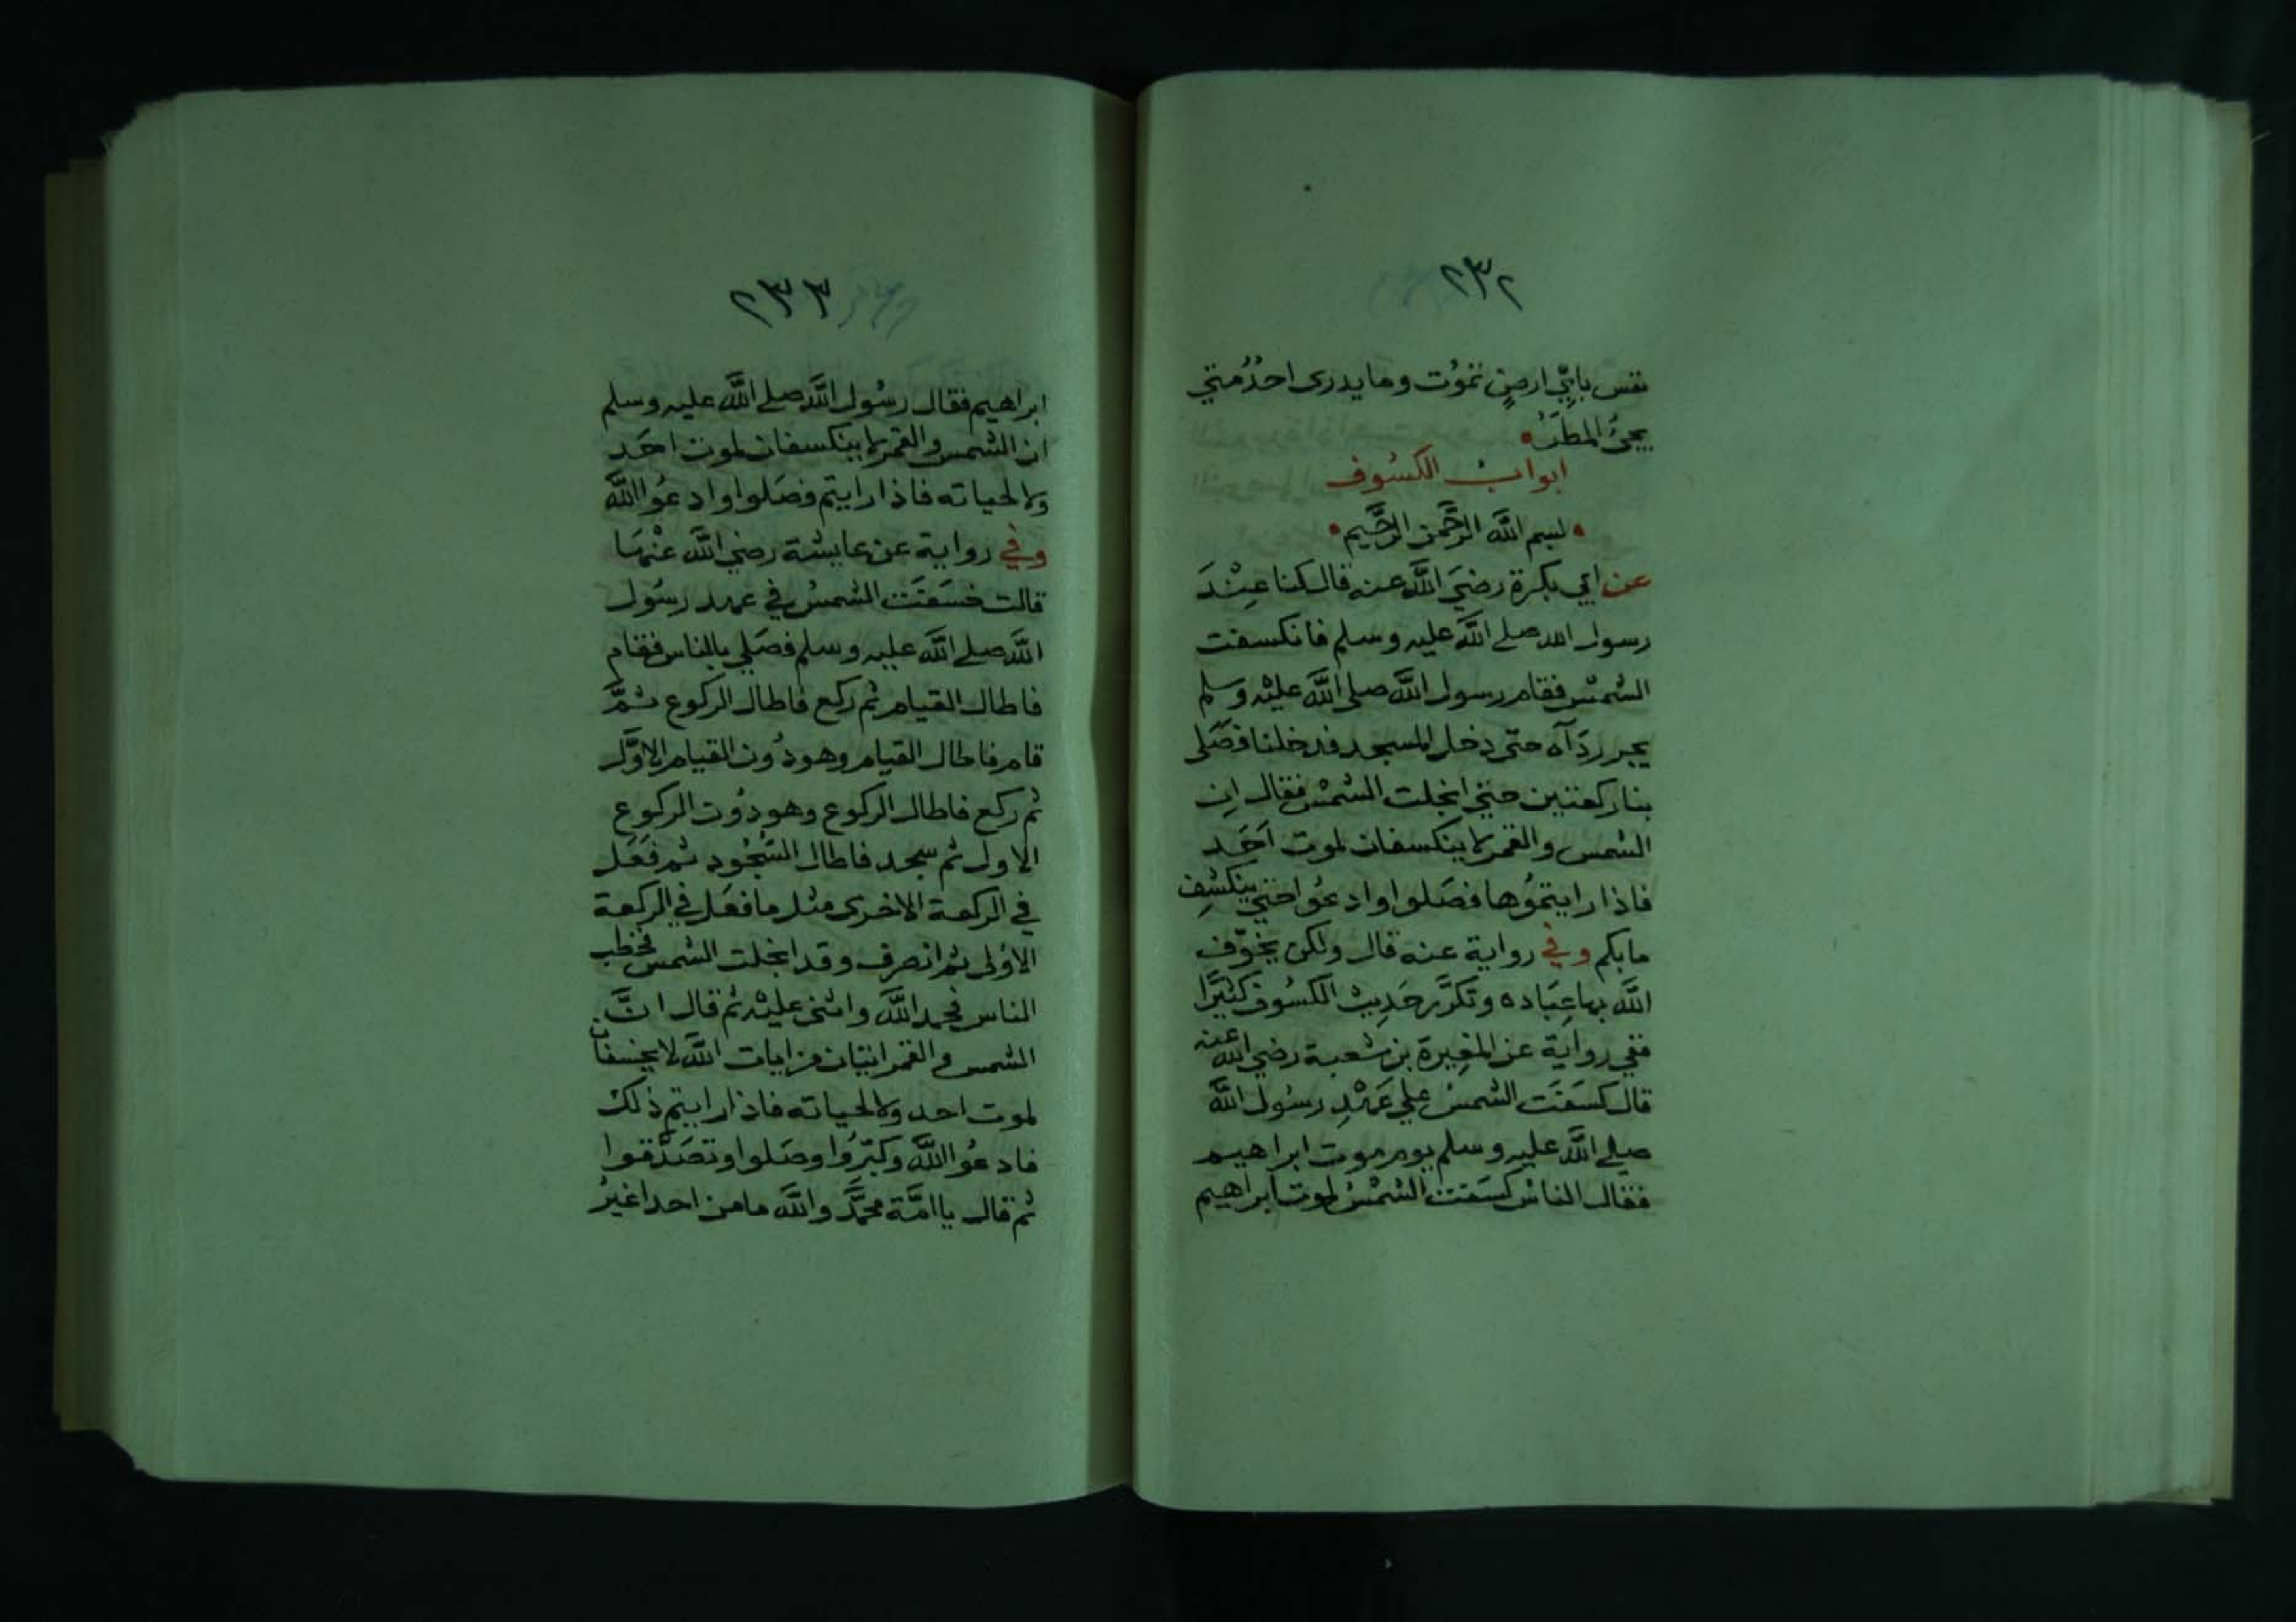 ٢٣٢
نفس بايِّ ارضٍ تموُت وما يدرى احدُ متي
يجئُ المطَرُ
ابوابُ الكسُوف
لبسم اللَّه الرَّحمن الرَّحيم
عن ابي بكرة رضيَ اللَّه عنه قال كنا عِنْدَ
رسول الله صلے اللَّه عليه وسلم فانكسفت
الشمسُ فقام رسول اللَّه صلى اللَّه عليْه وسلم
يجر ردَآه حتى دخل المسجد فدخلنا فصَلى
بنا ركعتين حتي انجلت الشمْسُ فقال اِن
الشمس والقمر لا ينكسفان لموت اَحَدِ
فاذا رايتموُها فصَلوا وادعوُا حتي ينكشِف
مابكم وفي رواية عنه قال ولكن يخوّف
اللَّه بها عِبَاده وتكرَّر حَدِيث الكسُوف كثيرًا
ففي رواية عن المغِيرة بن شعبة رضي اللَّه عنه
قال كسَفَت الشمسُ علي عَهْدِ رسُول اللَّه
صلے اللَّه عليه وسلم يوم موت ابراهيم
فقال الناسُ كسَفت الشمْسُ لموت ابراهيم
٢٣٣
ابراهيم فقال رسُول اللَّه صلے اللَّه عليه وسلم
ان الشمس والقمر لا ينكسفان لموت احَد
ولا لحياته فاذا رايتم فصَلوا وادعوُا اللَّه
وفي رواية عن عايشة رضي اللَّه عنْهَا
قالت خسَفَت الشمسُ في عهد رسُول
اللَّه صلے اللَّه عليه وسلم فصَلي بالناس فقام
فاطال القيام ثم ركع فاطال الركوع ثمَّ
قام فاطال القيام وهو دُون القيام الاوَّل
ثم ركع فاطال الركوع وهو دُون الركوع
الاول ثم سجد فاطال السُّجُود ثم فعَل
في الركعة الاخرى مثل ما فعَل في الركعة
الاوُلى ثم انصرف وقد انجلت الشمس فخطب
الناس فحمد اللَّه واثنى عليْه ثم قال انَّ
الشمس والقمر ايتان من ايات اللَّه لا يخسفان
لموت احد ولا لحياته فاذا رايتم ذلك
فادعوُا اللَّه وكبّرُوا وصَلوا وتصَدَّقوا
ثم قال يا امَّة محمَّد واللَّه ما من احد اغيرُ